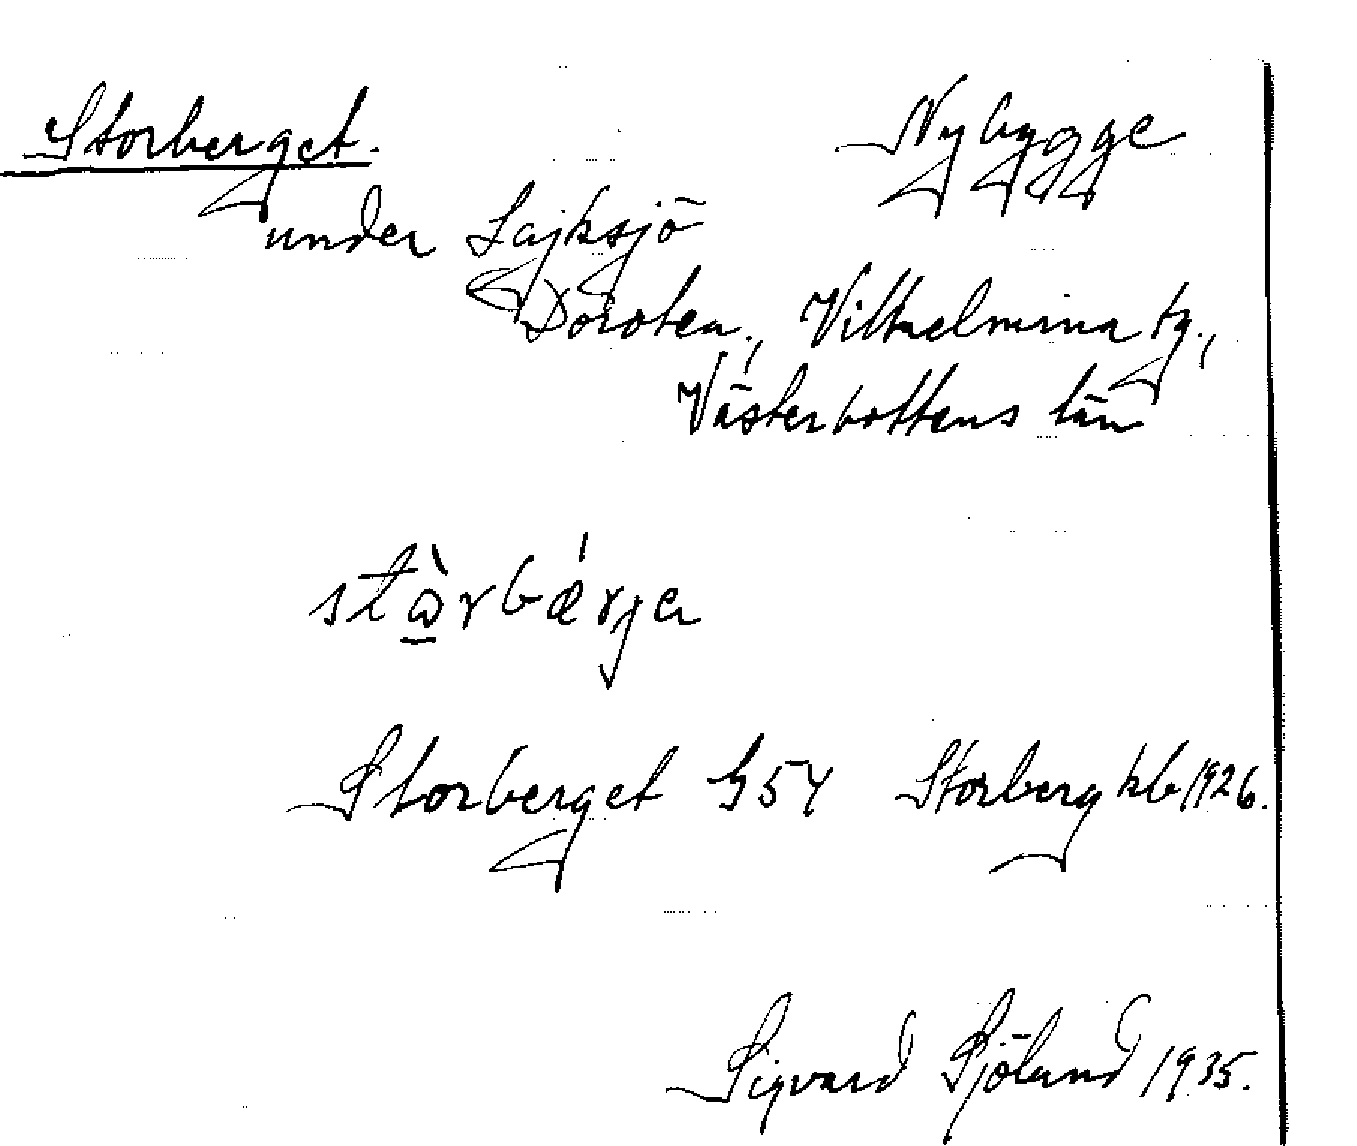 Storberget. Nybygge
under Lajksjö
Dorotea, Vilhelmina tg.,
Västerbottens län
stɷ̀rbǽrjɐ
Storberget G54 Storberg kb 1926.
Sigvard Sjölund 1935.